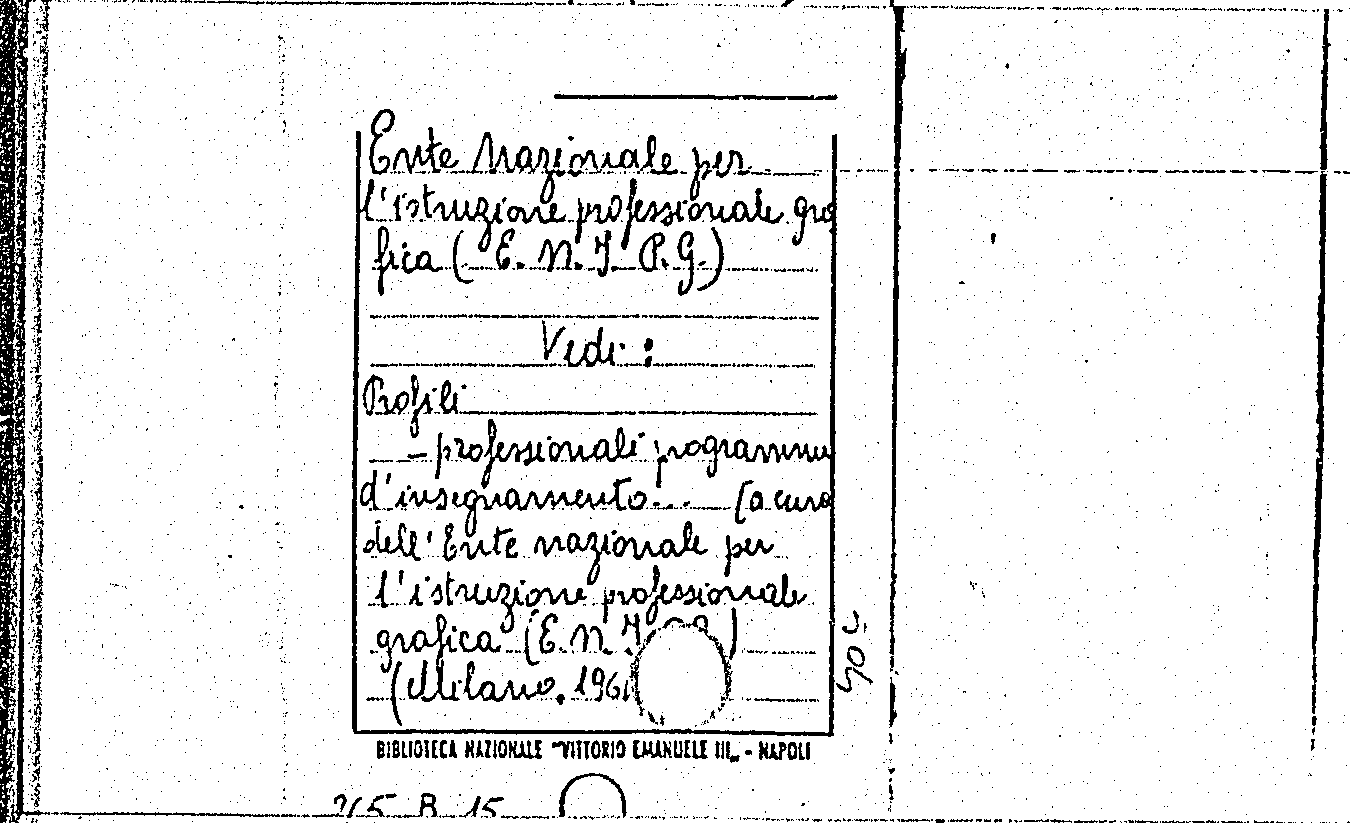 Ente Nazionale per
l'istruzione professionale gra
fica (E. N. I. P. G.)
Vedi:
Profili
- professionali programmi
d'insegnamento... [a cura
dell'Ente nazionale per
l'istruzione professionale
grafica (E. N. I.
(Milano, 196
BIBLIOTECA NAZIONALE "VITTORIO EMANUELE III„ - NAPOLI
B 15